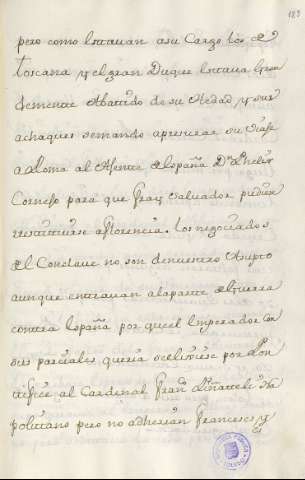 189
pero como estauan a su Cargo los de
toscana y el gran Duque estaua gran
demente Abattido de su Aedad y sus
achaques se mando apresurar su viaje
a Roma al Ajente de españa Dn Phelix
Cornejo para que fray saluador pudiese
restituirse a florencia. Los negociados
del Conclaue no son de nuestro Asupto
aunque entrauan a la parte de la guerra
contra españa por que el Imperador con
sus parciales queria se eligiese por Pon
tifice al Cardenal Fran.co Piñatteli Na
politano pero no adherian franceses y
BIBLIOTECA PUBLICA
TOLEDO